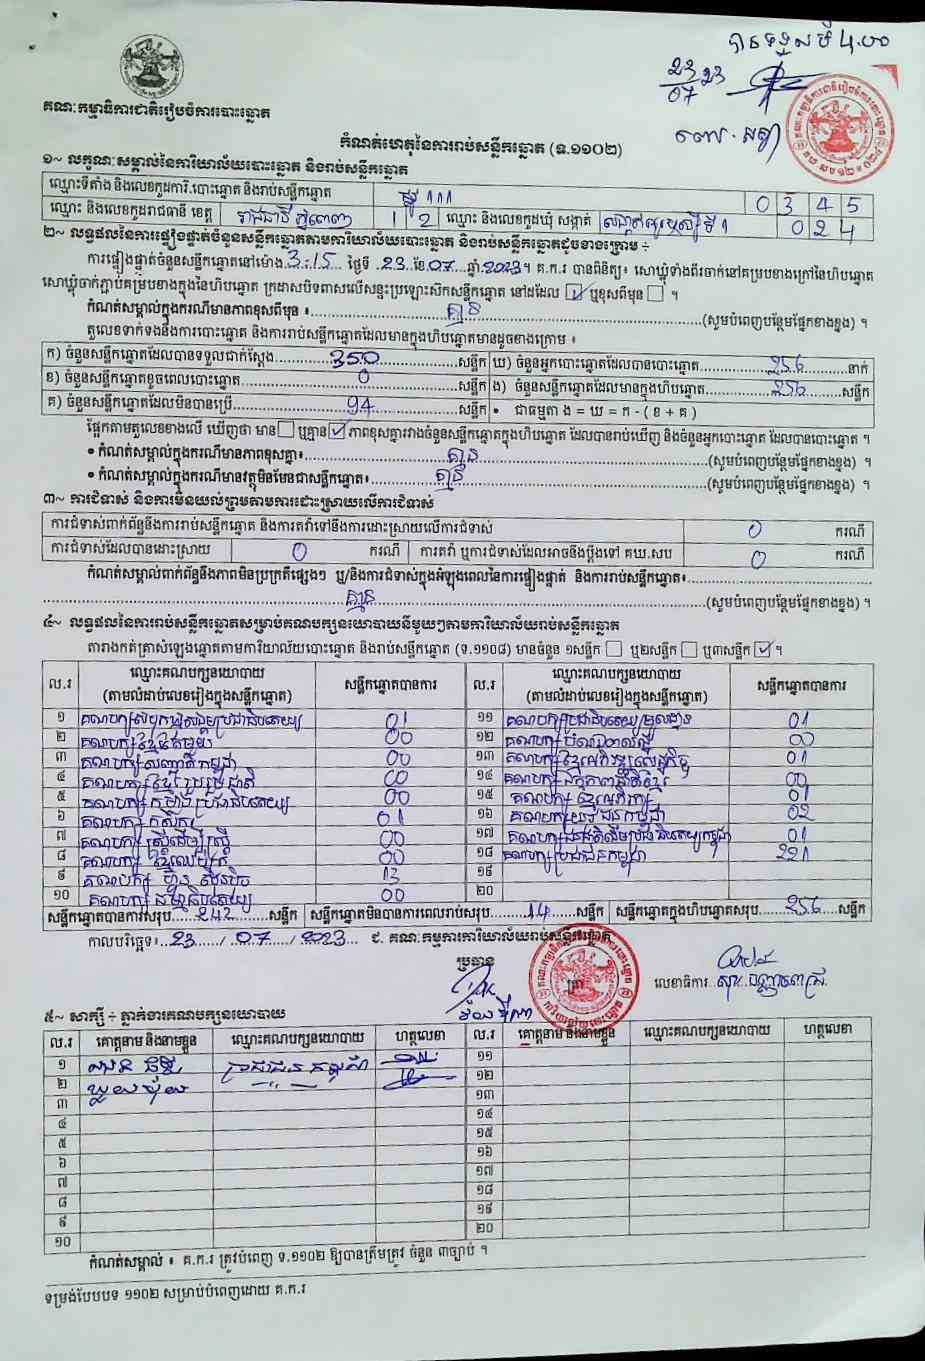 បានទទួលម៉ោង ៤.២០
23/07 23
គណៈកម្មាធិការជាតិរៀបចំការបោះឆ្នោត
កំណត់ហេតុនៃការរាប់សន្លឹកឆ្នោត (ទ.១១០២)
១~ លក្ខណៈសម្គាល់នៃការិយាល័យបោះឆ្នោត និងរាប់សន្លឹកឆ្នោត
ឈ្មោះទីតាំង និងលេខកូដការិ.បោះឆ្នោត និងរាប់សន្លឹកឆ្នោត 0 3 4 5
ឈ្មោះ និងលេខកូដរាជធានី ខេត្ត រាជធានីភ្នំពេញ 1 2 ឈ្មោះ និងលេខកូដឃុំ សង្កាត់ 0 2 4
២~ លទ្ធផលនៃការផ្ទៀងផ្ទាត់ចំនួនសន្លឹកឆ្នោតតាមការិយាល័យបោះឆ្នោត និងរាប់សន្លឹកឆ្នោតដូចខាងក្រោម ÷
ការផ្ទៀងផ្ទាត់ចំនួនសន្លឹកឆ្នោតនៅម៉ោង 3:15 ថ្ងៃទី 23 ខែ 07 ឆ្នាំ 2023។ គ.ក.រ បានពិនិត្យ៖ សោឃ្លុំទាំងពីរចាក់នៅគម្របខាងក្រៅនៃហិបឆ្នោត
សោឃ្លុំចាក់ភ្ជាប់គម្របខាងក្នុងនៃហិបឆ្នោត ក្រដាសបិទពាសលើសន្ទះប្រឡោះស៊កសន្លឹកឆ្នោត នៅដដែល ☑ ឬខុសពីមុន ☐ ។
កំណត់សម្គាល់ក្នុងករណីមានភាពខុសពីមុន ៖ គ្មាន (សូមបំពេញបន្ថែមផ្នែកខាងខ្នង) ។
តួលេខទាក់ទងនឹងការបោះឆ្នោត និងការរាប់សន្លឹកឆ្នោតដែលមានក្នុងហិបឆ្នោតមានដូចខាងក្រោម ៖
ក) ចំនួនសន្លឹកឆ្នោតដែលបានទទួលជាក់ស្តែង 350 សន្លឹក ឃ) ចំនួនអ្នកបោះឆ្នោតដែលបានបោះឆ្នោត 256 នាក់
ខ) ចំនួនសន្លឹកឆ្នោតខូចពេលបោះឆ្នោត 0 សន្លឹក ង) ចំនួនសន្លឹកឆ្នោតដែលមានក្នុងហិបឆ្នោត 256 សន្លឹក
គ) ចំនួនសន្លឹកឆ្នោតដែលមិនបានប្រើ 94 សន្លឹក • ជាធម្មតា ង = ឃ = ក - ( ខ + គ )
ផ្អែកតាមតួលេខខាងលើ ឃើញថា មាន ☐ ឬគ្មាន ☑ ភាពខុសគ្នារវាងចំនួនសន្លឹកឆ្នោតក្នុងហិបឆ្នោត ដែលបានរាប់ឃើញ និងចំនួនអ្នកបោះឆ្នោត ដែលបានបោះឆ្នោត ។
• កំណត់សម្គាល់ក្នុងករណីមានភាពខុសគ្នា៖ គ្មាន (សូមបំពេញបន្ថែមផ្នែកខាងខ្នង) ។
• កំណត់សម្គាល់ក្នុងករណីមានវត្ថុមិនមែនជាសន្លឹកឆ្នោត៖ គ្មាន (សូមបំពេញបន្ថែមផ្នែកខាងខ្នង) ។
៣~ ការជំទាស់ និងការមិនយល់ព្រមតាមការដោះស្រាយលើការជំទាស់
ការជំទាស់ពាក់ព័ន្ធនឹងការរាប់សន្លឹកឆ្នោត និងការតវ៉ាទៅនឹងការដោះស្រាយលើការជំទាស់ 0 ករណី
ការជំទាស់ដែលបានដោះស្រាយ 0 ករណី ការតវ៉ា ឬការជំទាស់ដែលអាចនឹងប្តឹងទៅ គឃ.សប 0 ករណី
កំណត់សម្គាល់ពាក់ព័ន្ធនឹងភាពមិនប្រក្រតីផ្សេងៗ ឬ/និងការជំទាស់ក្នុងអំឡុងពេលនៃការផ្ទៀងផ្ទាត់ និងការរាប់សន្លឹកឆ្នោត៖
គ្មាន (សូមបំពេញបន្ថែមផ្នែកខាងខ្នង) ។
៤~ លទ្ធផលនៃការរាប់សន្លឹកឆ្នោតសម្រាប់គណបក្សនយោបាយនីមួយៗតាមការិយាល័យរាប់សន្លឹកឆ្នោត
តារាងកត់ត្រាសំឡេងឆ្នោតតាមការិយាល័យបោះឆ្នោត និងរាប់សន្លឹកឆ្នោត (ទ.១១០៨) មានចំនួន ១សន្លឹក ☐ ឬ២សន្លឹក ☐ ឬ៣សន្លឹក ☑ ។
ល.រ ឈ្មោះគណបក្សនយោបាយ (តាមលំដាប់លេខរៀងក្នុងសន្លឹកឆ្នោត) សន្លឹកឆ្នោតបានការ ល.រ ឈ្មោះគណបក្សនយោបាយ (តាមលំដាប់លេខរៀងក្នុងសន្លឹកឆ្នោត) សន្លឹកឆ្នោតបានការ
១ គណបក្សសំបុកឃ្មុំសង្គមប្រជាធិបតេយ្យ 01 ១១ គណបក្សប្រជាធិបតេយ្យមូលដ្ឋាន 01
២ គណបក្សខ្មែរតែមួយ 00 ១២ គណបក្ស 00
៣ គណបក្សសញ្ជាតិកម្ពុជា 00 ១៣ គណបក្សខ្មែរអភិវឌ្ឍន៍សេដ្ឋកិច្ច 01
៤ គណបក្សខ្មែររួបរួមជាតិ 00 ១៤ គណបក្សឯកភាពជាតិខ្មែរ 00
៥ គណបក្សកម្លាំងប្រជាធិបតេយ្យ 00 ១៥ គណបក្សខ្មែរអភិរក្ស 01
៦ គណបក្សកសិករ 01 ១៦ គណបក្សយុវជនកម្ពុជា 02
៧ គណបក្សស្ត្រីដើម្បីស្ត្រី 00 ១៧ គណបក្សជនជាតិដើមប្រជាធិបតេយ្យកម្ពុជា 01
៨ គណបក្សខ្មែរឈប់ក្រ 00 ១៨ គណបក្សប្រជាជនកម្ពុជា 221
៩ គណបក្សហ៊្វុនស៊ិនប៉ិច 13 ១៩
១០ គណបក្សធម្មាធិបតេយ្យ 00 ២០
សន្លឹកឆ្នោតបានការសរុប 242 សន្លឹក សន្លឹកឆ្នោតមិនបានការពេលរាប់សរុប 14 សន្លឹក សន្លឹកឆ្នោតក្នុងហិបឆ្នោតសរុប 256 សន្លឹក
កាលបរិច្ឆេទ៖ 23 / 07 / 2023 ជ. គណៈកម្មការការិយាល័យរាប់សន្លឹកឆ្នោត
ប្រធាន ត្រា លេខាធិការ
៥~ សាក្សី ÷ ភ្នាក់ងារគណបក្សនយោបាយ
ល.រ គោត្តនាម និងនាមខ្លួន ឈ្មោះគណបក្សនយោបាយ ហត្ថលេខា ល.រ គោត្តនាម និងនាមខ្លួន ឈ្មោះគណបក្សនយោបាយ ហត្ថលេខា
១ ប្រជាជនកម្ពុជា ១១
២ ១២
៣ ១៣
៤ ១៤
៥ ១៥
៦ ១៦
៧ ១៧
៨ ១៨
៩ ១៩
១០ ២០
កំណត់សម្គាល់ ៖ គ.ក.រ ត្រូវបំពេញ ទ.១១០២ ឱ្យបានត្រឹមត្រូវ ចំនួន ៣ច្បាប់ ។
ទម្រង់បែបបទ ១១០២ សម្រាប់បំពេញដោយ គ.ក.រ